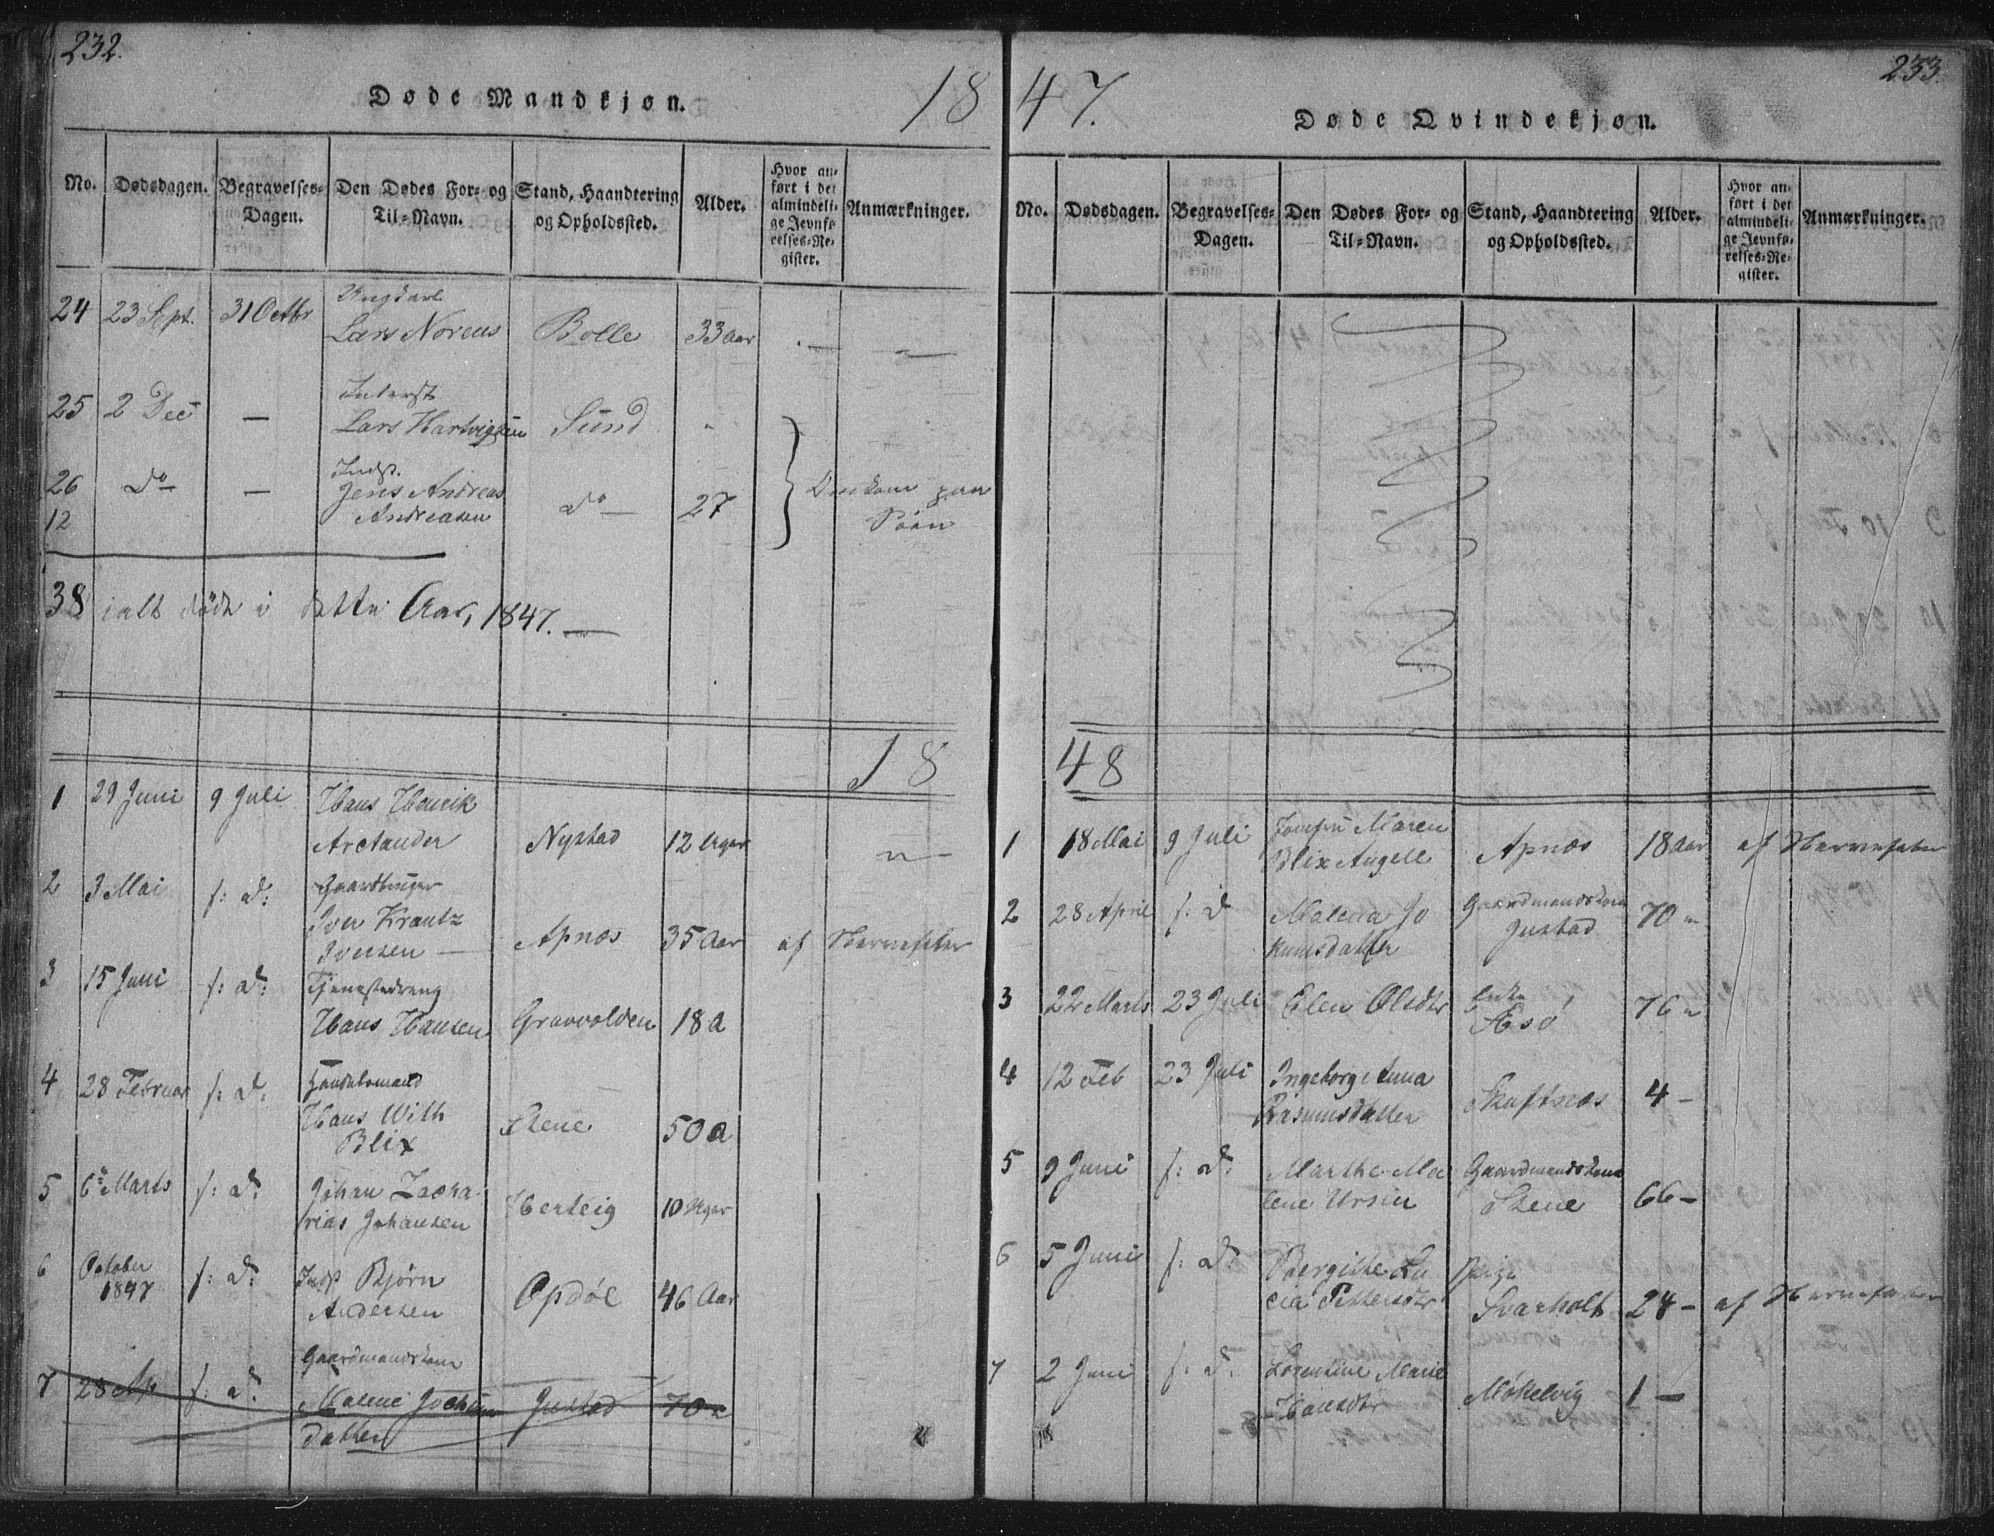 232.
Døde Mandkjøn.
18
No.
Dødsdagen.
Begravelses-
Dagen.
Den Dødes For- og
Til-Navn.
Stand, Haandtering
og Opholdssted.
Alder.
Hvor an-
ført i det
almindeli-
ge Jevnfø-
relses-Re-
gister.
Anmærkninger.
24 23 Sept. 31 Octbr Ungkarl
Lars Norens Bolle 33 Aar — —
25 2 Dec — Inderst
Lars Hartvigsen Sund
26 Do — Indst.
Jens Andreas
Andreasen do — 27 Omkom paa
Søen
12
38 ialt døde i dette Aar, 1847. —
18
1 29 Juni 9 Juli Hans Henrik
Arctander Nystad 12 Uger —
2 3 Mai s: D: Gaardbruger
Iver Krantz
Iversen — Apnæs 35 Aar af Nervefeber
3 15 Juni s: D: Tjenestedreng
Hans Hansen Gravvolden 18 a
4 28 Februar s: D: Handelsmand
Hans With
Blix Stene 50 a
5 6te Marts s: D: Johan Zacha-
rias Johansen Herteig 10 Uger
6 October
1847 s: D: Indst Bjørn
Andersen Opdøl 46 Aar
7 28 Ap s: D: Gaardmandskone
Malene Jochum
datter Justad 70
233.
47.
Døde Qvindekjøn.
No.
Dødsdagen.
Begravelses-
Dagen.
Den Dødes For- og
Til-Navn.
Stand, Haandtering
og Opholdssted.
Alder.
Hvor an-
ført i det
almindeli-
ge Jevnfø-
relses-Re-
gister.
Anmærkninger.
48
1 18 Mai 9 Juli Jomfru Maren
Blix Angell Apnæs 18 Aar af Nervefeber
2 28 April s: D Malena Jo
kumsdatter Gaardmandskone
Justad 70
3 22 Marts 23 Juli Elen Olsdtr Enke
Æsø 76
4 12 Feb 23 Juli Ingeborg Anna
Rasmusdatter Skaftnæs 4 —
5 9 Juni s: D: Marthe Ma
lene Ursin Gaardmandskone
Stene 66 —
6 5 Juni s: D: Bergitte Lu
cia Pettersdtr Pige
Svarholt 24 — af Nervefeber
7 2 Juni s: D: Lorentine Marie
Hansdtr Møkelvig 1 —